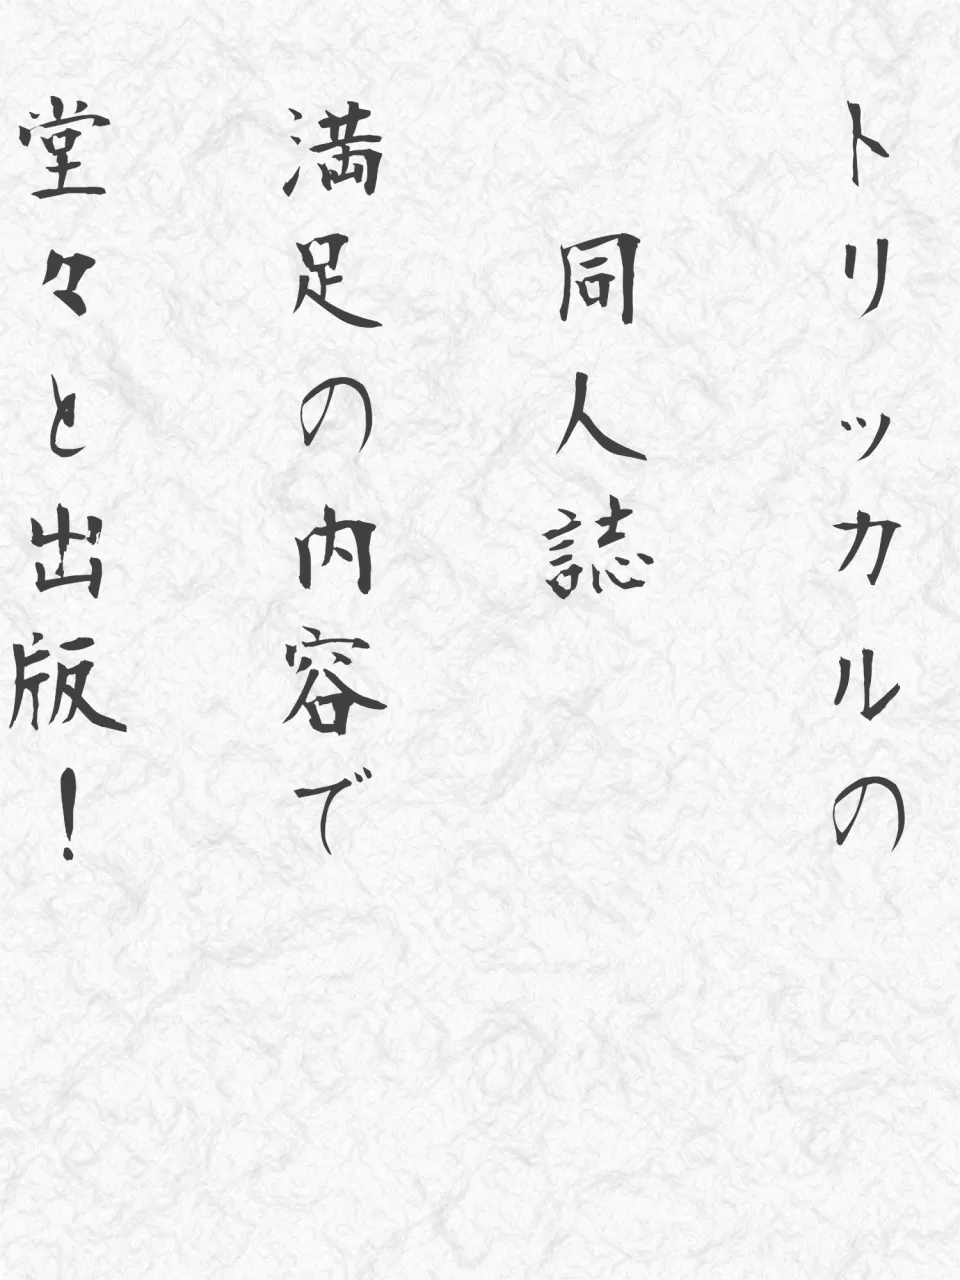 トリッカルの
同人誌
満足の内容で
堂々と出版！